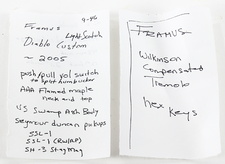 9-46
Framus
Light Scratch
Diablo Custom
~ 2005
push/pull vol switch
to split humbucker
AAA Flamed maple
neck and top
US Swamp Ash Body
Seymour duncan pickups
SSL-1
SSL-1 (RW/RP)
SH-3 Stag Mag
FRAMUS
Wilkinson
Compensated
Tremolo
hex keys